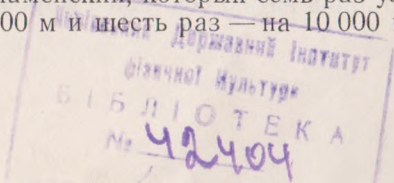 который семь раз
00 м и шесть раз — на 10 000
Державний Інститут
фізичної культури
БІБЛІОТЕКА
№ 42404